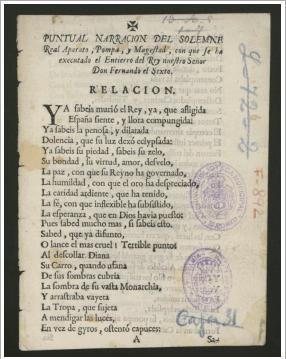 PUNTUAL NARRACION DEL SOLEMNE
Real Aparato, Pompa, y Magestad, con que se ha
executado el Entierro del Rey nuestro Señor
Don Fernando el Sexto.
RELACION.
YA sabeis murió el Rey, ya, que afligida
España siente, y llora compungida:
Ya sabeis la penosa, y dilatada
Dolencia, que su luz dexó eclypsada:
Ya sabeis su piedad, sabeis su zelo,
Su bondad, su virtud, amor, desvelo,
La paz, con que su Reyno ha governado,
La humildad, con que el oro ha despreciado,
La caridad ardiente, que ha tenido,
La fè, con que inflexible ha subsistido,
La esperanza, que en Dios havia puesto:
Pues sabed mucho mas, si sabeis esto.
Sabed, que ya difunto,
O lance el mas cruel! Terrible punto!
Al descollar Diana
Su Carro, quando ufana
De sus sombras cubria
La sombra de su vasta Monarchìa,
Y arrastraba vayeta
La Tropa, que sujeta
A mendigar las luces,
En vez de gyros, ostentó capuces:
A
Caja 31